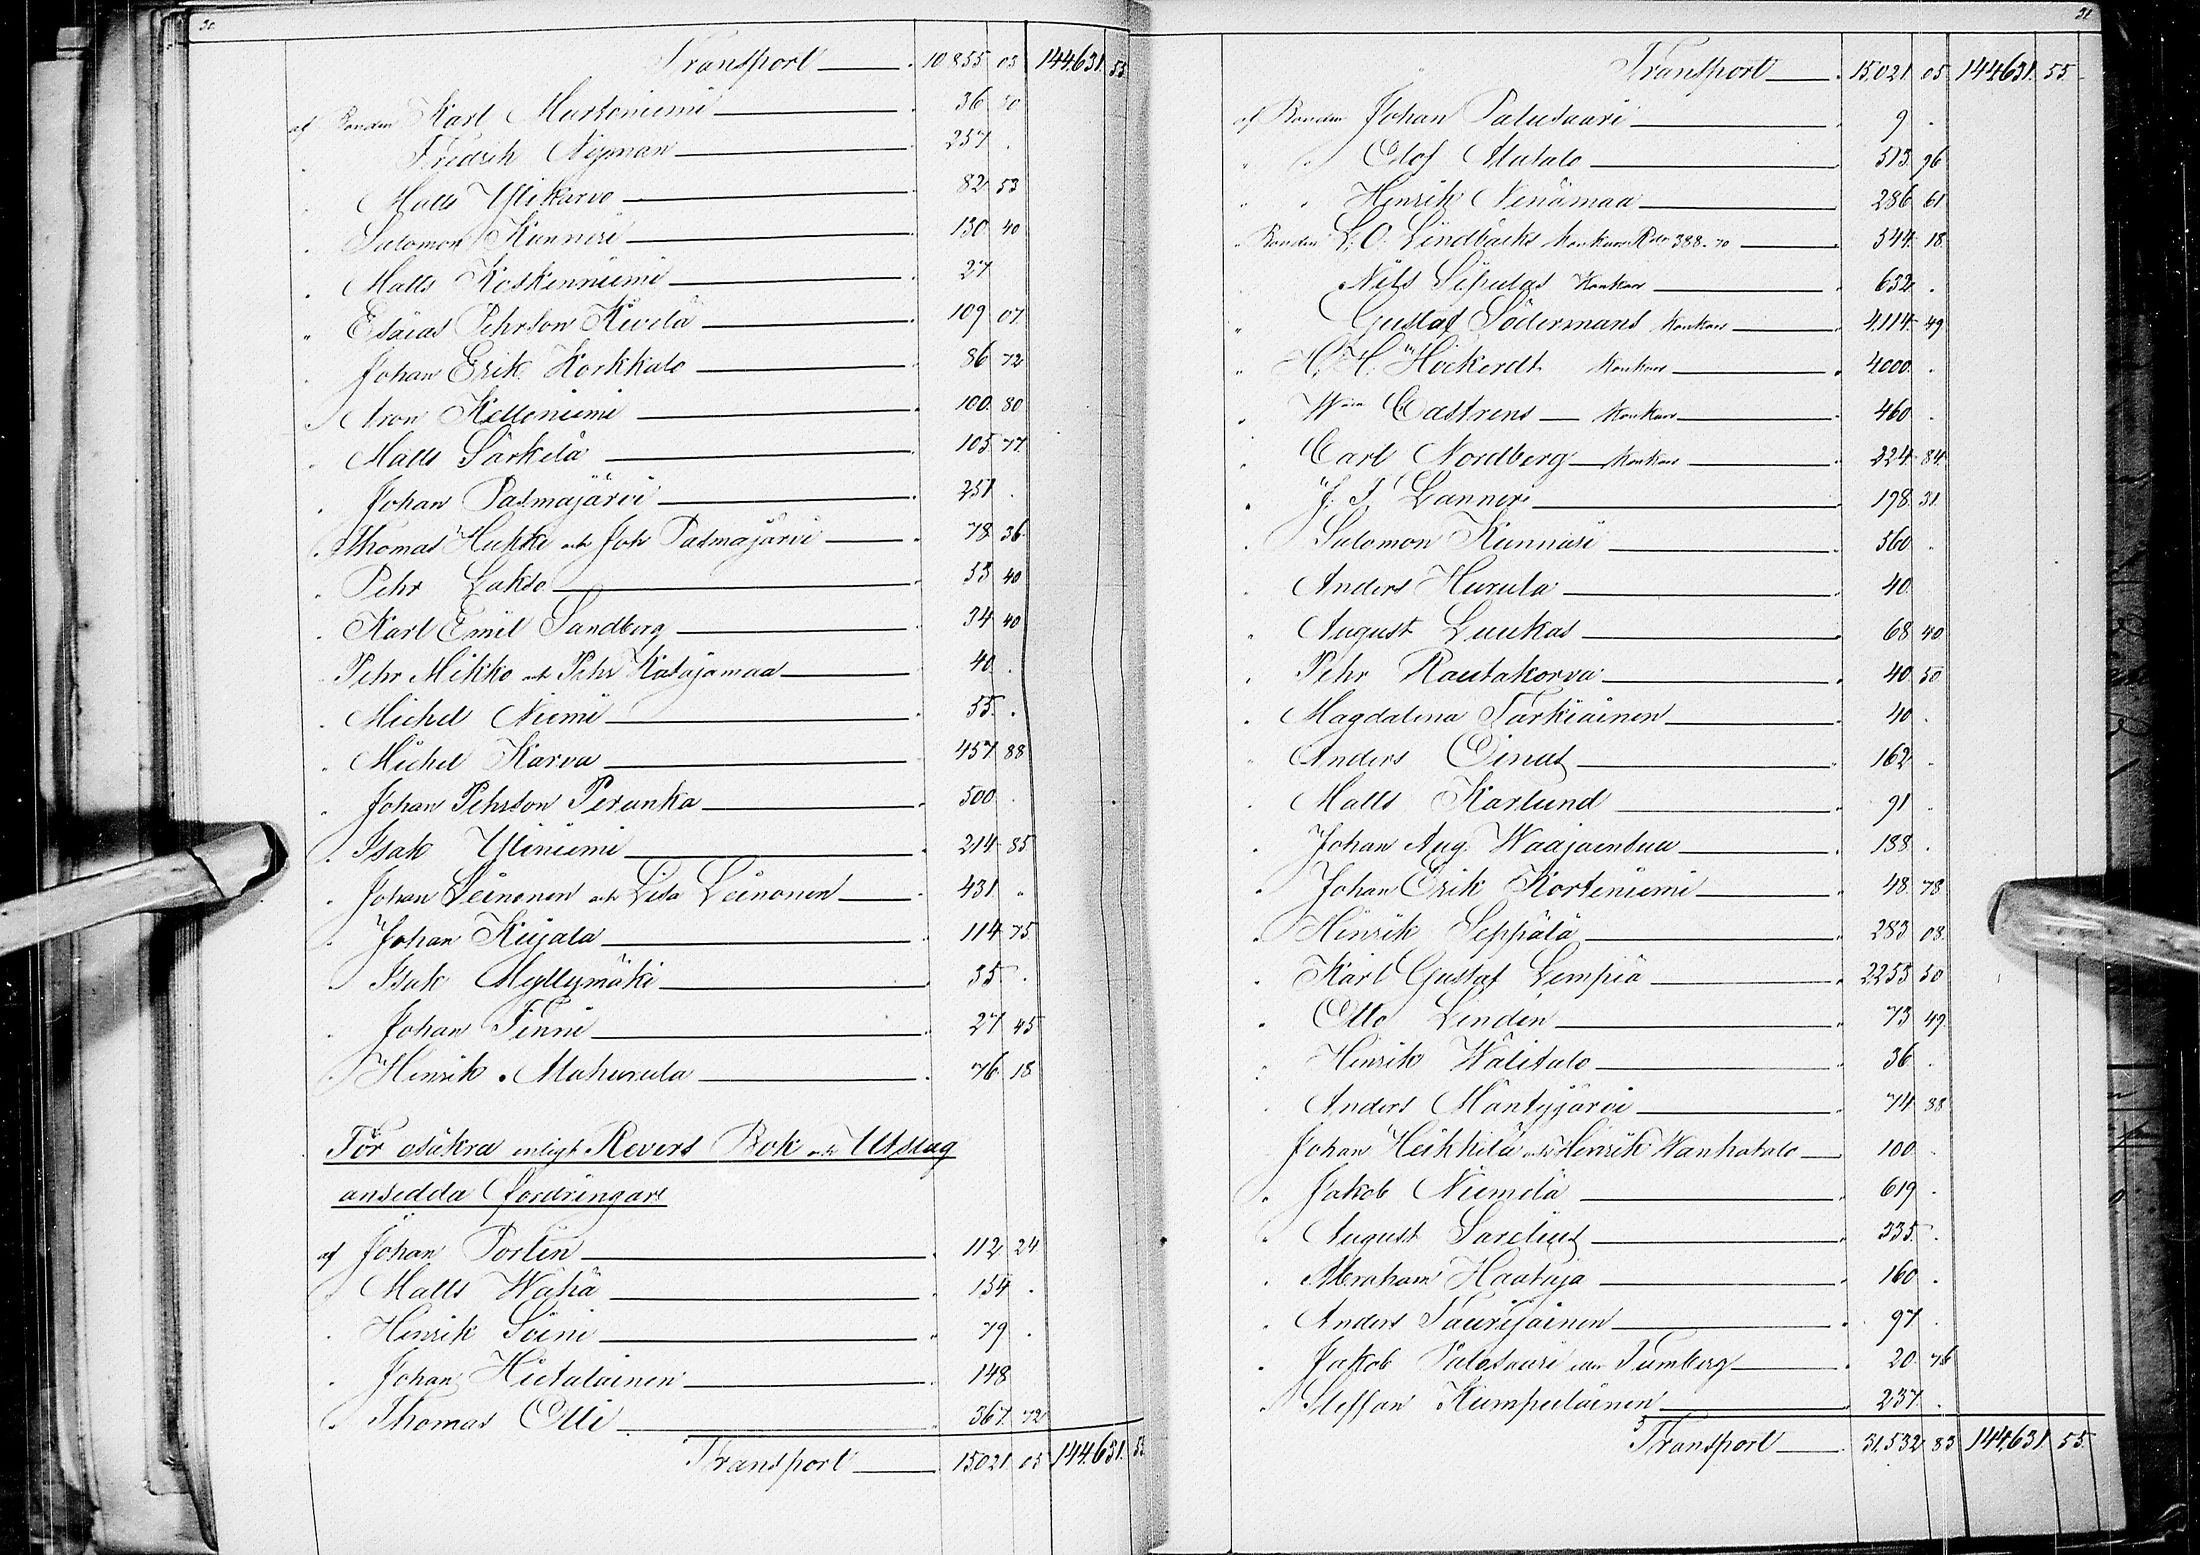 30
Transport 10.855 03 144.631. 55
af Bonden Karl Martoniemi 36 70
Fredrik Nyman 257 .
" Matts Ylikarvo 82 53
" Salomon Kunnari 130 40
" Matts Koskenniemi 27
" Esaias Pehrson Kivelä 109 07
" Johan Erik Korkkalo 86 72
" Aron Kelloniemi 100 80
" Matts Särkelä 105 77
" Johan Pasmajärvi 251 .
" Thomas Hukki och Joh Pasmajärvi 78 36
" Pehr Lakso 53 40
" Karl Emil Sandberg 34 40
" Pehr Mikko och Pehr Katajamaa 40 .
" Michel Niemi 55 .
" Michel Karva 457 88
" Johan Pehrson Peranka 500 .
" Isak Yliniemi 214 85
" Johan Leinonen och Lisa Leinonen 431 "
" Johan Kujala 114 75
" Isak Myllymäki 35 .
" Johan Finni 27 45
" Henrik Mahurula 76 18
För osäkra enligt Revers Bok och Utslag
ansedda fordringar
af Johan Portin 112 24
" Matts Wähä 154 .
" Henrik Soini 79 .
" Johan Hietalainen 148
" Thomas Olli 367 72
Transport 15.021 05 144.631. 55
31
Transport 15.021 05 144.631. 55
af Bonden Johan Palusaari 9 .
" " Olof Alatalo 513 96
" " Henrik Nenämaa 286 61
" Bonden L. O. Lindbäcks konkurs Rdr 388.70 544 18
Nils Sipulas Konkurs 652 .
" Gustaf Södermans konkurs 4.114 49
" H. H. Höckerdt konkurs 4000 .
" Wm Castrens konkurs 460 .
" Carl Nordberg konkurs 224 84
" J. F. Lanner 198 31
" Salomon Kunnari 360 .
" Anders Hurula 40
" August Luukas 68 40
" Pehr Rautakorva 40 50
" Magdalena Tarkiainen 40 .
" Anders Oinas 162 .
" Matts Karlund 91 .
" Johan Aug. Waajaensuu 188 .
" Johan Erik Korteniemi 48 78
" Henrik Seppälä 283 08
" Karl Gustaf Lempiä 2253 50
" Otto Linden 73 49
" Henrik Wälitalo 36 .
" Anders Mäntyjärvi 74 38
Johan Heikkilä och Henrik Wanhatalo 100 .
" Jakob Niemelä 619 .
" August Sarelius 335 .
" Abraham Hautaja 160 .
" Anders Tauriainen 97 .
" Jakob Palosaari Tumberg 20 76
" Steffan Kumpulainen 237 .
Transport 31.532 83 144.631 55